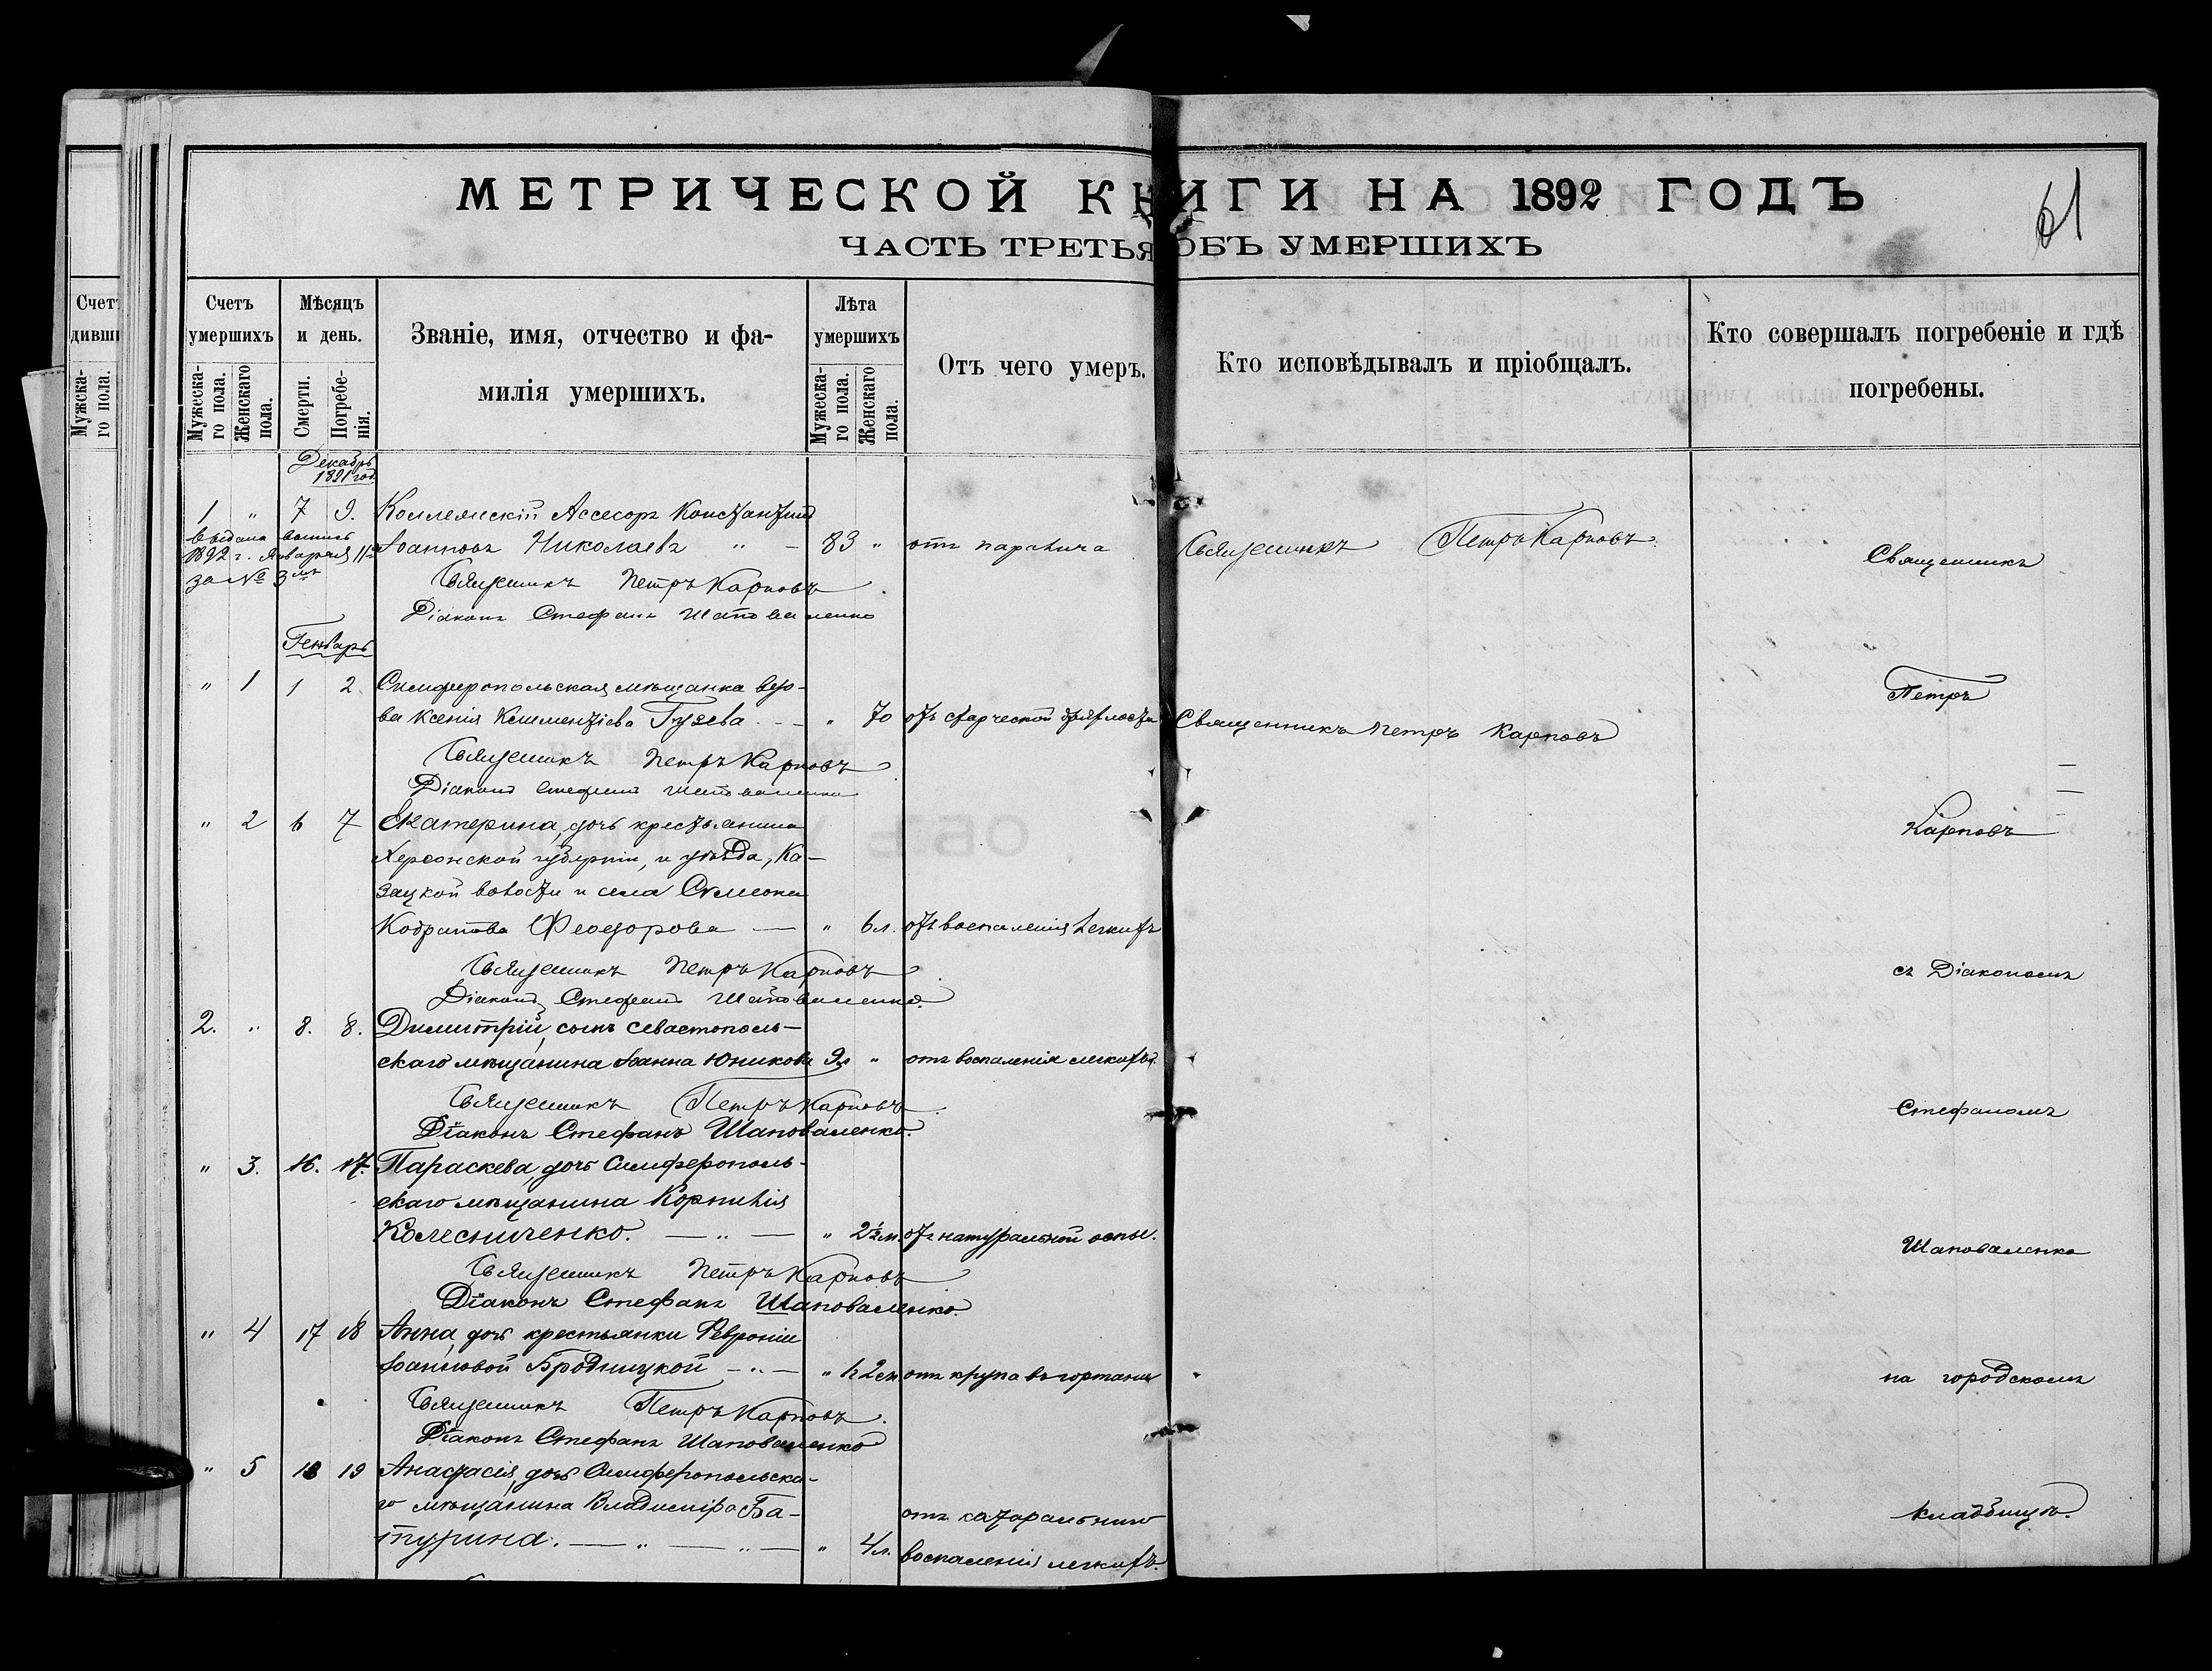 МЕТРИЧЕСКОЙ КНИГИ НА 1892 ГОДЪ
61
ЧАСТЬ ТРЕТЬЯ ОБЪ УМЕРШИХЪ
Счетъ умершихъ
Мужеска-го пола.
Женскаго пола.
Мѣсяцъ и день.
Смерти.
Погребе-нія.
Званіе, имя, отчество и фа-
милія умершихъ.
Лѣта умершихъ
Мужеска-го пола.
Женскаго пола.
Отъ чего умеръ.
Кто исповѣдывалъ и пріобщалъ.
Кто совершалъ погребеніе и гдѣ
погребены.
Декабрь
1891 год.
1 " 7 9. Коллежскій Ассесоръ Константинъ
Іоанновъ Николаевъ " — 83 " отъ паралича Священникъ Петръ Карповъ
выдана выпись
1892 г. Января 11
за № 3
Священникъ Петръ Карповъ
Діаконъ Стефанъ Шаповаленко
Генварь
" 1 1 2 Симферопольская мѣщанка вдо-
ва Ксенія Климентіева Гузева — " 70 отъ старческой дряхлости Священникъ Петръ Карповъ
Священникъ Петръ Карповъ
Діаконъ Стефанъ Шаповаленко
" 2 6 7 Екатерина, дочь крестьянина
Херсонской губерніи, и уѣзда, Ка-
зацкой волости и села Симеона
Кодратова Феодорова — " 6 л. отъ воспаленія легкихъ
Священникъ Петръ Карповъ
Діаконъ Стефанъ Шаповаленко.
2. " 8. 8. Димитрій, сынъ Севастополь-
скаго мѣщанина Іоанна Юникова 9 " отъ воспаленія легкихъ.
Священникъ Петръ Карповъ
Діаконъ Стефанъ Шаповаленко.
" 3. 16. 17. Параскева, дочь Симферополь-
скаго мѣщанина Корнилія
Колесниченко. — " — " 2½ м. отъ натуральной оспы.
Священникъ Петръ Карповъ
Діаконъ Стефанъ Шаповаленко.
" 4 17 18 Анна, дочь крестьянки Февроніи
Іоанновой Бродницкой — " — " отъ крупа въ гортани
Священникъ Петръ Карповъ.
Діаконъ Стефанъ Шаповаленко
" 5 18 19 Анастасія, дочь Симферопольска-
го мѣщанина Владиміра Ба-
турина. — " — " — " 4 л. отъ катаральнаго
воспаленія легкихъ.
Священникъ
Петръ
Карповъ
съ Діакономъ
Стефаномъ
Шаповаленко
на городскомъ
кладбищѣ.
Счетъ
дивши
Мужска-го пола.